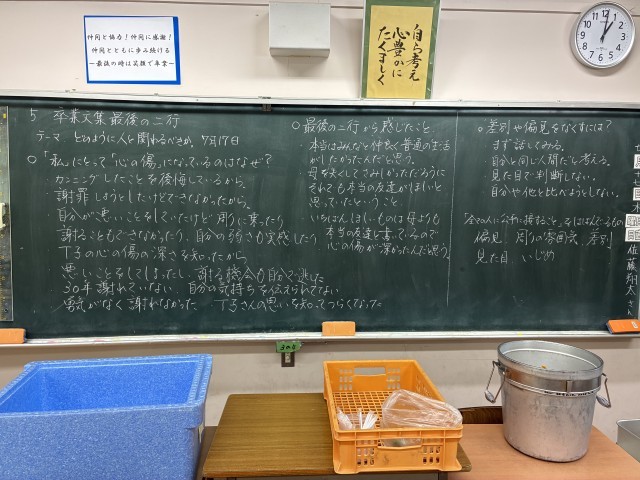 仲間と協力!仲間に感謝!
仲間とともに歩み続ける
~最後の時は笑顔で卒業~
自ら考え
心豊かに
たくましく
5 卒業文集最後の二行
テーマ どのように人と関わるべきか。 7月17日
○「私にとって「心の傷」になっているのはなぜ?
カンニングしたことを後悔しているから。
謝罪しようとしたけどできなかったから。
自分が悪いことをしていたけど周りに乗ったり
謝ることもできなかったり、自分の弱さも実感したり
T子の心の傷の深さを知ったから。
悪いことをしてしまったし、謝る機会も自分で逃した
30年謝れていない、自分の気持ちを伝えられてない
勇気がなく謝れなかった T子さんの思いを知ってつらくなった
○最後の二行から感じたこと
本当はみんなと仲良く普通の生活
がしたかったんだと思う。
母を亡くしてさみしかっただろうに
それでも本当の友達がほしいと
思っていたということ
いちばんほしいものは母よりも
本当の友達と書いているので
心の傷が深かったんだと思う。
○差別や偏見をなくすには?
まず話してみる。
自分と同じ人間だと考える。
見た目で判断しない。
自分や他と比べようとしない。
全ての人に公平に接することをはばんでいるもの
偏見、周りの雰囲気、差別
見た目 いじめ
佐藤翔大さん
304